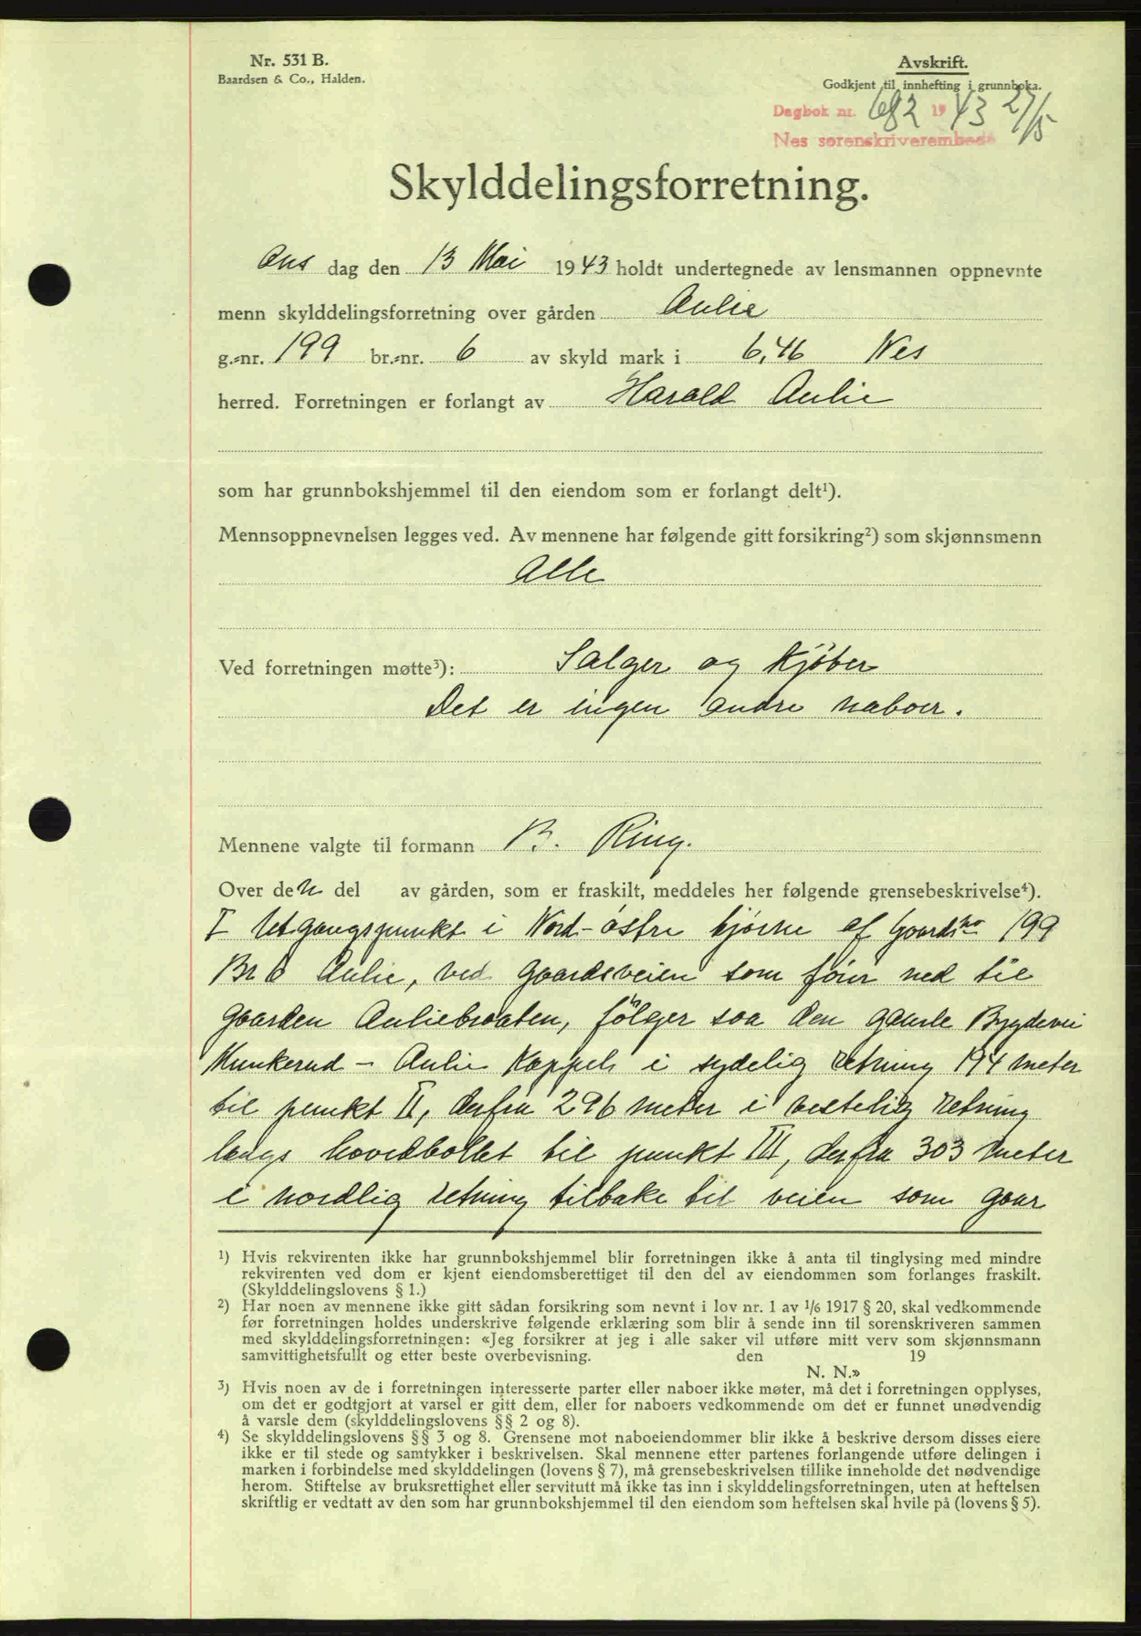 Nr. 531 B.
Baardsen & Co., Halden.
Avskrift.
Godkjent til innhefting i grunnboka.
Dagbok nr. 682 1943 27/5
Nes sorenskriverembede
Skylddelingsforretning.
Ons dag den 13 Mai 1943 holdt undertegnede av lensmannen oppnevnte
menn skylddelingsforretning over gården Aulie
g.-nr. 199 br.-nr. 6 av skyld mark i 6,46 Nes
herred. Forretningen er forlangt av Harald Aulie
som har grunnbokshjemmel til den eiendom som er forlangt delt¹).
Mennsoppnevnelsen legges ved. Av mennene har følgende gitt forsikring²) som skjønnsmenn
Alle
Ved forretningen møtte³): Salger og Kjöber
Det er ingen andre naboer.
Mennene valgte til formann B. Ring.
Over den del av gården, som er fraskilt, meddeles her følgende grensebeskrivelse⁴).
I Utgangspunkt i Nord-östre hjörne af Gaards no 199
Br 6 Aulie, ved gaardsveien som förer ned til
gaarden Auliebraaten, fölger saa den gamle Bygdevei
Munkerud - Aulie Kappel i sydelig retning 194 meter
til punkt II, derfra 296 meter i vestelig retning
langs hovedböllet til punkt III, derfra 303 meter
i nordlig retning tilbake til veien som gaar
¹) Hvis rekvirenten ikke har grunnbokshjemmel blir forretningen ikke å anta til tinglysing med mindre
rekvirenten ved dom er kjent eiendomsberettiget til den del av eiendommen som forlanges fraskilt.
(Skylddelingslovens § 1.)
²) Har noen av mennene ikke gitt sådan forsikring som nevnt i lov nr. 1 av 1/6 1917 § 20, skal vedkommende
før forretningen holdes underskrive følgende erklæring som blir å sende inn til sorenskriveren sammen
med skylddelingsforretningen: «Jeg forsikrer at jeg i alle saker vil utføre mitt verv som skjønnsmann
samvittighetsfullt og etter beste overbevisning. den 19
N. N.»
³) Hvis noen av de i forretningen interesserte parter eller naboer ikke møter, må det i forretningen opplyses,
om det er godtgjort at varsel er gitt dem, eller for naboers vedkommende om det er funnet unødvendig
å varsle dem (skylddelingslovens §§ 2 og 8).
⁴) Se skylddelingslovens §§ 3 og 8. Grensene mot naboeiendommer blir ikke å beskrive dersom disses eiere
ikke er til stede og samtykker i beskrivelsen. Skal mennene etter partenes forlangende utføre delingen i
marken i forbindelse med skylddelingen (lovens § 7), må grensebeskrivelsen tillike inneholde det nødvendige
herom. Stiftelse av bruksrettighet eller servitutt må ikke tas inn i skylddelingsforretningen, uten at heftelsen
skriftlig er vedtatt av den som har grunnbokshjemmel til den eiendom som heftelsen skal hvile på (lovens § 5).